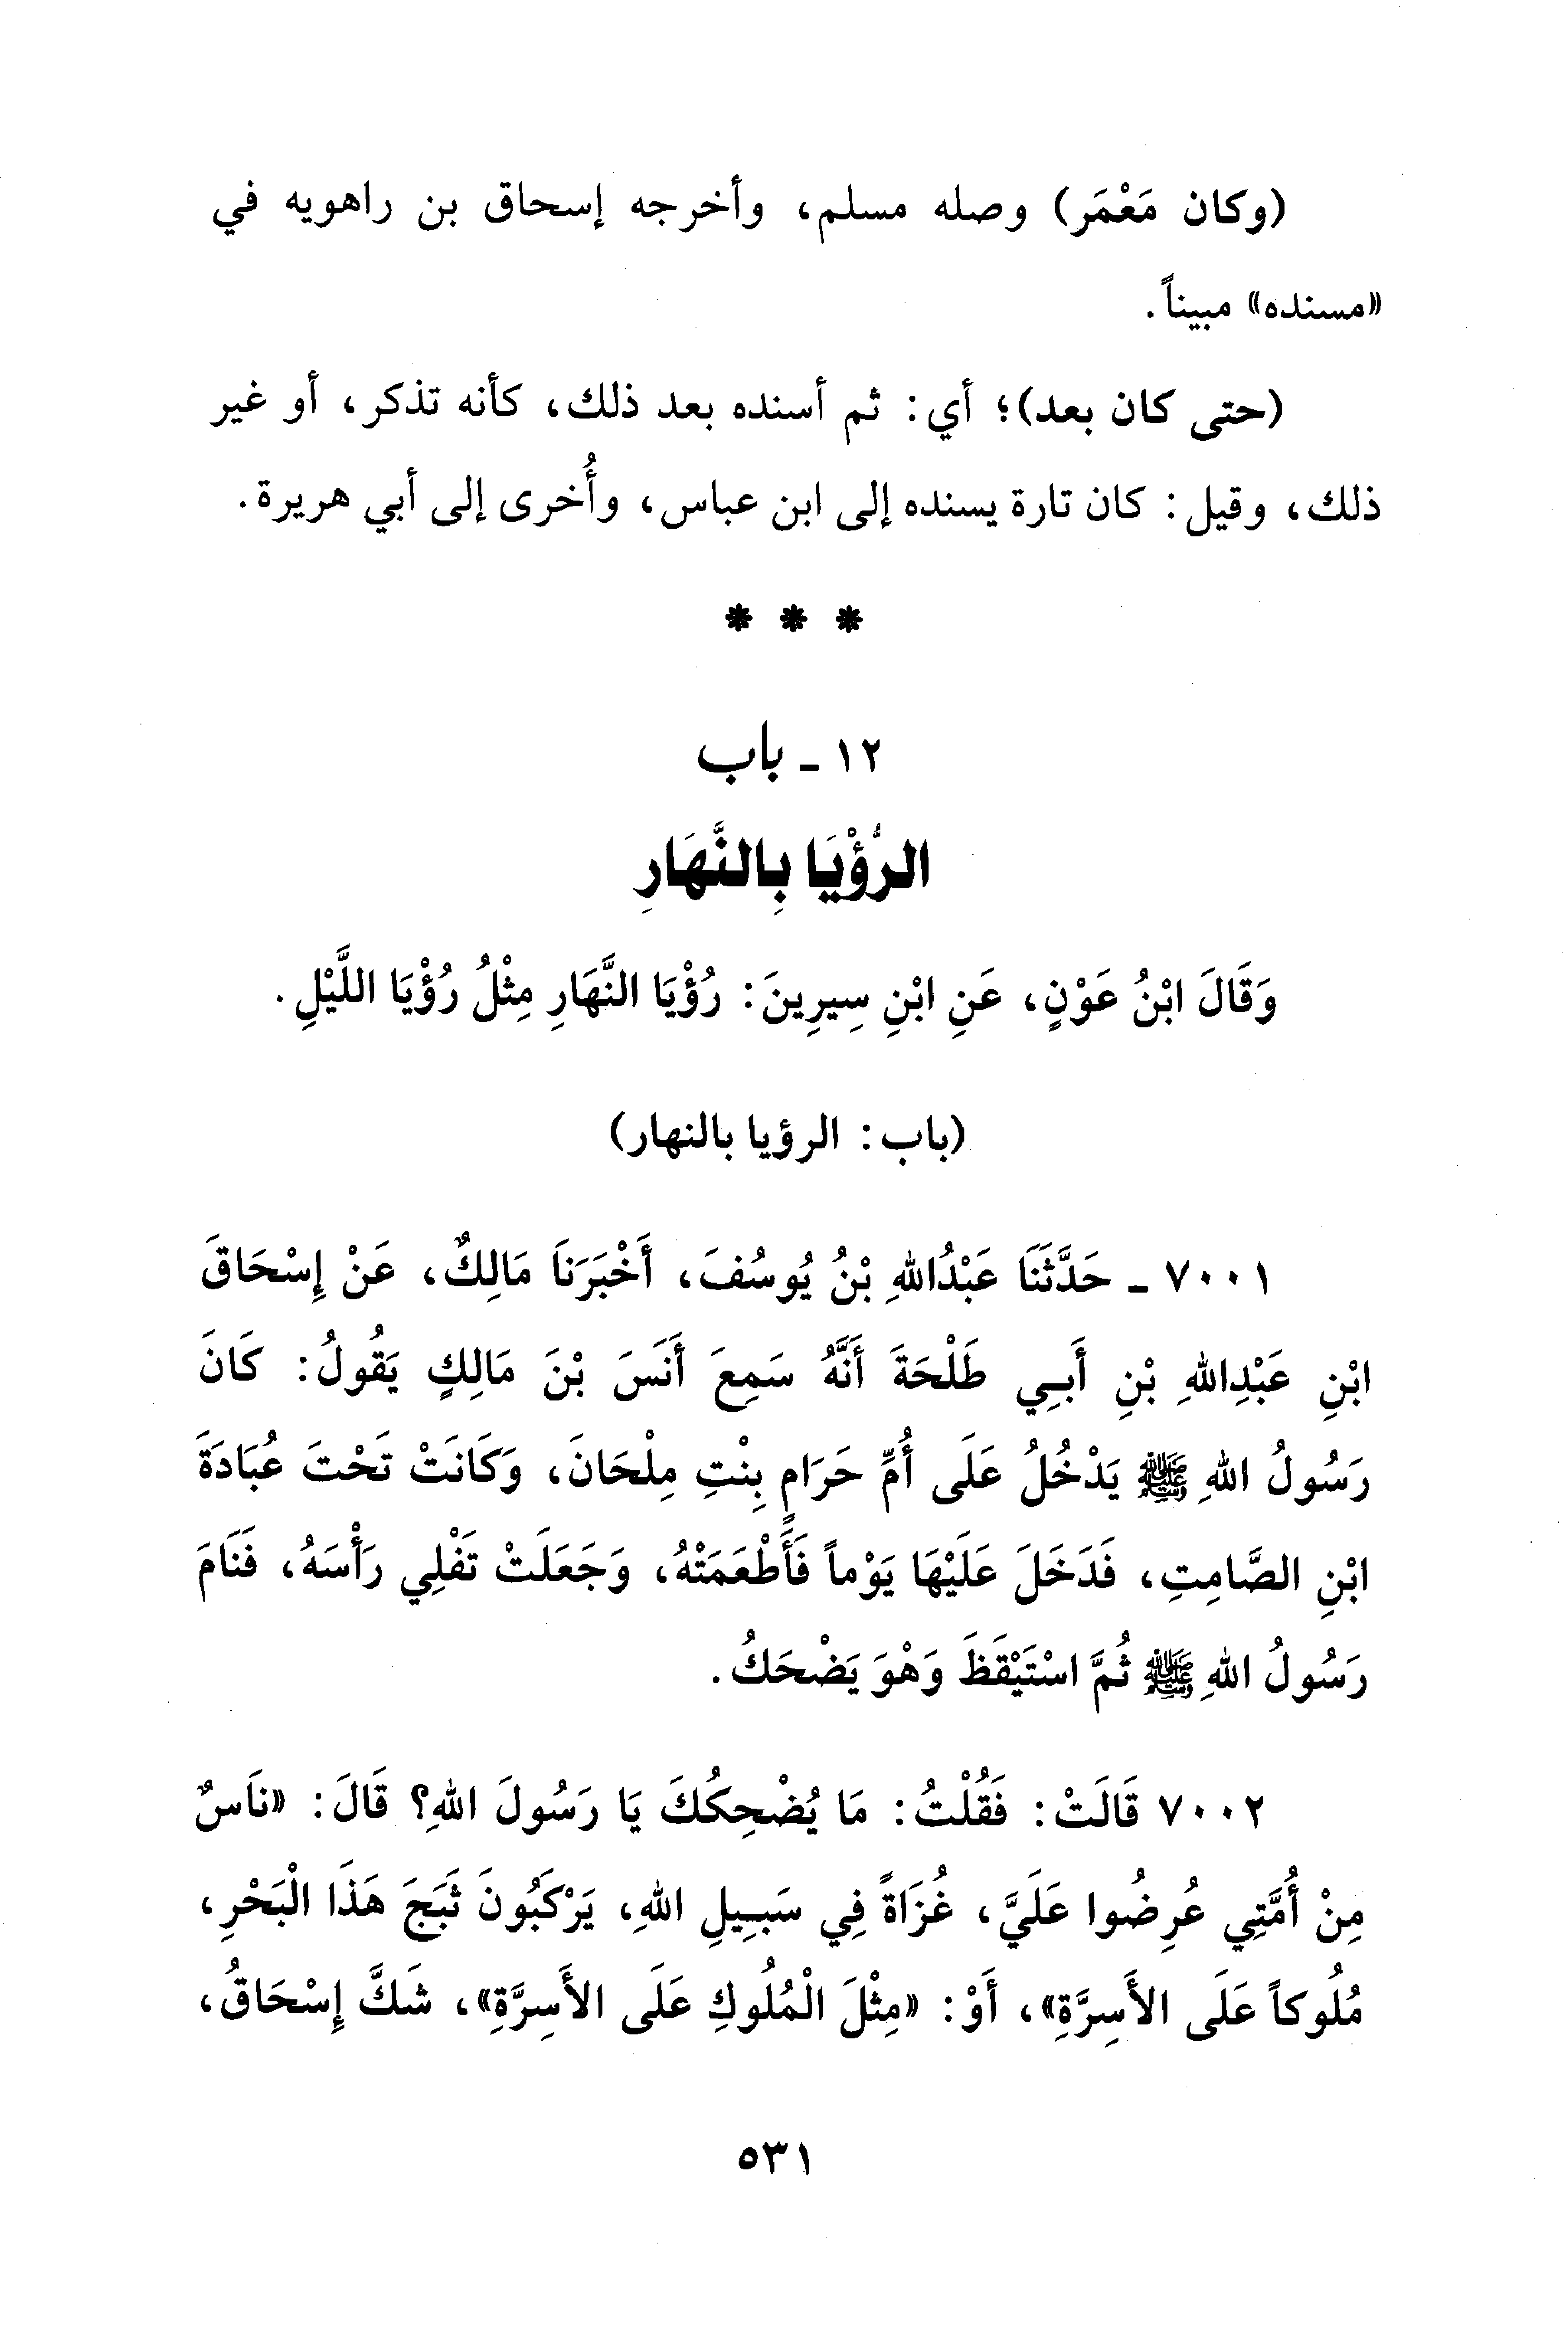 (وكان مَعْمَر) وصله مسلم، وأخرجه إسحاق بن راهويه في
«مسنده» مبيناً.
(حتى كان بعد)؛ أي: ثم أسنده بعد ذلك، كأنه تذكر، أو غير
ذلك، وقيل: كان تارة يسنده إلى ابن عباس، وأُخرى إلى أبي هريرة.
* * *
١٢ - باب
الرُّؤْيَا بِالنَّهَارِ
وَقَالَ ابْنُ عَوْنٍ، عَنِ ابْنِ سِيرِينَ: رُؤْيَا النَّهَارِ مِثْلُ رُؤْيَا اللَّيْلِ.
(باب: الرؤيا بالنهار)
٧٠٠١ - حَدَّثَنَا عَبْدُاللهِ بْنُ يُوسُفَ، أَخْبَرَنَا مَالِكٌ، عَنْ إِسْحَاقَ
ابْنِ عَبْدِاللهِ بْنِ أَبِي طَلْحَةَ أَنَّهُ سَمِعَ أَنَسَ بْنَ مَالِكٍ يَقُولُ: كَانَ
رَسُولُ اللهِ ﷺ يَدْخُلُ عَلَى أُمِّ حَرَامٍ بِنْتِ مِلْحَانَ، وَكَانَتْ تَحْتَ عُبَادَةَ
ابْنِ الصَّامِتِ، فَدَخَلَ عَلَيْهَا يَوْماً فَأَطْعَمَتْهُ، وَجَعَلَتْ تَفْلِي رَأْسَهُ، فَنَامَ
رَسُولُ اللهِ ﷺ ثُمَّ اسْتَيْقَظَ وَهْوَ يَضْحَكُ.
٧٠٠٢ قَالَتْ: فَقُلْتُ: مَا يُضْحِكُكَ يَا رَسُولَ اللهِ؟ قَالَ: «نَاسٌ
مِنْ أُمَّتِي عُرِضُوا عَلَيَّ، غُزَاةً فِي سَبِيلِ اللهِ، يَرْكَبُونَ ثَبَجَ هَذَا الْبَحْرِ،
مُلُوكاً عَلَى الأَسِرَّةِ»، أَوْ: «مِثْلَ الْمُلُوكِ عَلَى الأَسِرَّةِ»، شَكَّ إِسْحَاقُ،
٥٣١